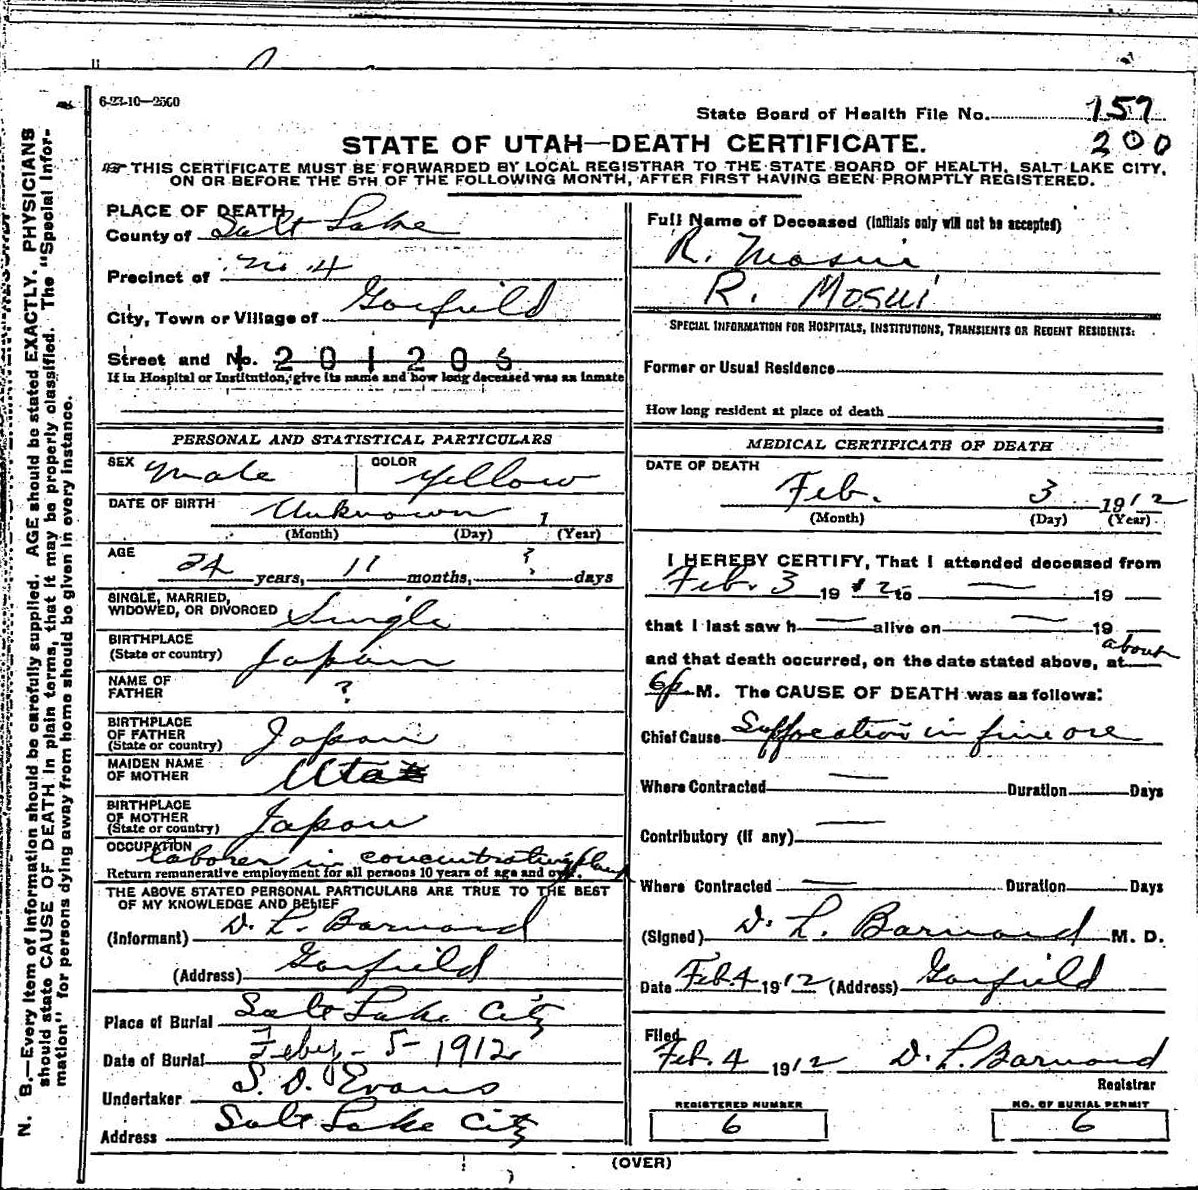 6-23-10—2500
State Board of Health File No. 157
200
STATE OF UTAH—DEATH CERTIFICATE.
THIS CERTIFICATE MUST BE FORWARDED BY LOCAL REGISTRAR TO THE STATE BOARD OF HEALTH, SALT LAKE CITY,
ON OR BEFORE THE 5TH OF THE FOLLOWING MONTH, AFTER FIRST HAVING BEEN PROMPTLY REGISTERED.
N. B.—Every item of information should be carefully supplied. AGE should be stated EXACTLY. PHYSICIANS
should state CAUSE OF DEATH in plain terms, that it may be properly classified. The "Special Infor-
mation" for persons dying away from home should be given in every instance.
PLACE OF DEATH
County of Salt Lake
Precinct of No. 4
City, Town or Village of Garfield
Street and No. 1201206
If in Hospital or Institution, give its name and how long deceased was an inmate
PERSONAL AND STATISTICAL PARTICULARS
SEX Male COLOR Yellow
DATE OF BIRTH Unknown 1
(Month) (Day) (Year)
AGE
24 years, 11 months, ? days
SINGLE, MARRIED,
WIDOWED, OR DIVORCED Single
BIRTHPLACE
(State or country) Japan
NAME OF
FATHER ?
BIRTHPLACE
OF FATHER
(State or country) Japan
MAIDEN NAME
OF MOTHER
BIRTHPLACE
OF MOTHER
(State or country) Japan
OCCUPATION laborer in concentrating plant
Return remunerative employment for all persons 10 years of age and over.
THE ABOVE STATED PERSONAL PARTICULARS ARE TRUE TO THE BEST
OF MY KNOWLEDGE AND BELIEF
(Informant) D. L. Barnard
(Address) Garfield
Place of Burial Salt Lake City
Date of Burial Feby - 5 - 1912
Undertaker S. D. Evans
Address Salt Lake City
Full Name of Deceased (Initials only will not be accepted)
R. Mosui
R. MOSUI
SPECIAL INFORMATION FOR HOSPITALS, INSTITUTIONS, TRANSIENTS OR RECENT RESIDENTS:
Former or Usual Residence
How long resident at place of death
MEDICAL CERTIFICATE OF DEATH
DATE OF DEATH
Feb. 3 1912
(Month) (Day) (Year)
I HEREBY CERTIFY, That I attended deceased from
Feb. 3 1912 to — 19
that I last saw h — alive on — 19 —
and that death occurred, on the date stated above, at about
6 p M. The CAUSE OF DEATH was as follows:
Chief Cause Suffocation in fine ore
Where Contracted — Duration Days
Contributory (if any) —
Where Contracted — Duration Days
(Signed) D. L. Barnard M. D.
Date Feb. 4 1912 (Address) Garfield
Filed
Feb. 4 1912 D. L. Barnard
Registrar
REGISTERED NUMBER
6
NO. OF BURIAL PERMIT
6
(OVER)